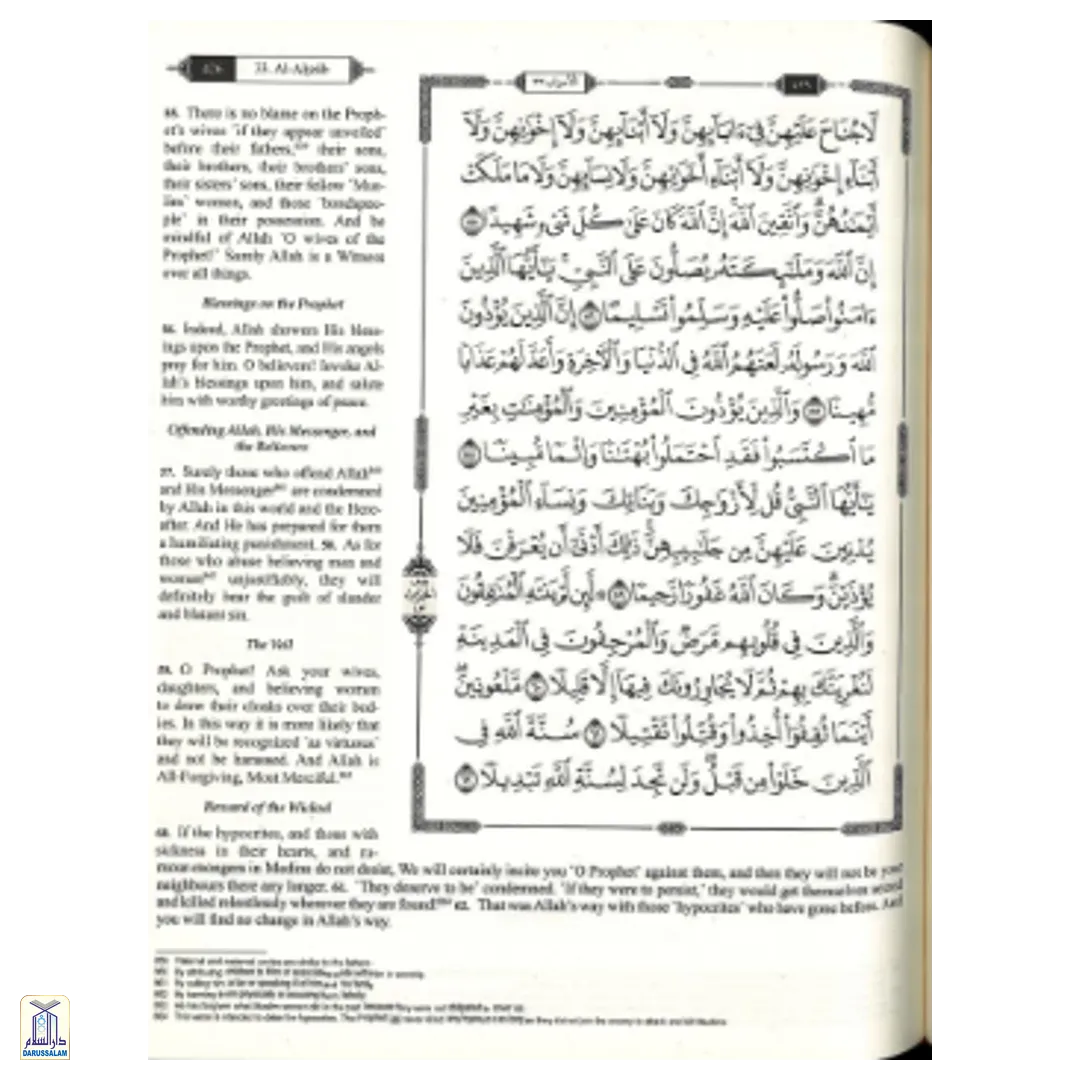 33. Al-Aḥzâb
الأحزاب ٣٣
٤٢٦
55. There is no blame on the Proph-
et's wives ˹if they appear unveiled˺
before their fathers, their sons,
their brothers, their brothers' sons,
their sisters' sons, their fellow ˹Mus-
lim˺ women, and those ˹bondspeo-
ple˺ in their possession. And be
mindful of Allah ˹O wives of the
Prophet!˺ Surely Allah is a Witness
over all things.
Blessings on the Prophet
56. Indeed, Allah showers His bless-
ings upon the Prophet, and His angels
pray for him. O believers! Invoke Al-
lah's blessings upon him, and salute
him with worthy greetings of peace.
Offending Allah, His Messenger, and
the Believers
57. Surely those who offend Allah
and His Messenger are condemned
by Allah in this world and the Here-
after. And He has prepared for them
a humiliating punishment. 58. As for
those who abuse believing men and
women unjustifiably, they will
definitely bear the guilt of slander
and blatant sin.
The Veil
59. O Prophet! Ask your wives,
daughters, and believing women
to draw their cloaks over their bod-
ies. In this way it is more likely that
they will be recognized ˹as virtuous˺
and not be harassed. And Allah is
All-Forgiving, Most Merciful.
Reward of the Wicked
60. If the hypocrites, and those with
sickness in their hearts, and ru-
mour-mongers in Medina do not desist, We will certainly incite you ˹O Prophet˺ against them, and then they will not be your
neighbours there any longer. 61. ˹They deserve to be˺ condemned. ˹If they were to persist,˺ they would get themselves seized
and killed relentlessly wherever they are found! 62. That was Allah's way with those ˹hypocrites˺ who have gone before. And
you will find no change in Allah's way.
لَّا جُنَاحَ عَلَيْهِنَّ فِىٓ ءَابَآئِهِنَّ وَلَآ أَبْنَآئِهِنَّ وَلَآ إِخْوَٰنِهِنَّ وَلَآ
أَبْنَآءِ إِخْوَٰنِهِنَّ وَلَآ أَبْنَآءِ أَخَوَٰتِهِنَّ وَلَا نِسَآئِهِنَّ وَلَا مَا مَلَكَتْ
أَيْمَٰنُهُنَّ وَٱتَّقِينَ ٱللَّهَ إِنَّ ٱللَّهَ كَانَ عَلَىٰ كُلِّ شَىْءٍ شَهِيدًا ٥٥
إِنَّ ٱللَّهَ وَمَلَٰٓئِكَتَهُۥ يُصَلُّونَ عَلَى ٱلنَّبِىِّ يَٰٓأَيُّهَا ٱلَّذِينَ
ءَامَنُوا۟ صَلُّوا۟ عَلَيْهِ وَسَلِّمُوا۟ تَسْلِيمًا ٥٦ إِنَّ ٱلَّذِينَ يُؤْذُونَ
ٱللَّهَ وَرَسُولَهُۥ لَعَنَهُمُ ٱللَّهُ فِى ٱلدُّنْيَا وَٱلْءَاخِرَةِ وَأَعَدَّ لَهُمْ عَذَابًا
مُّهِينًا ٥٧ وَٱلَّذِينَ يُؤْذُونَ ٱلْمُؤْمِنِينَ وَٱلْمُؤْمِنَٰتِ بِغَيْرِ
مَا ٱكْتَسَبُوا۟ فَقَدِ ٱحْتَمَلُوا۟ بُهْتَٰنًا وَإِثْمًا مُّبِينًا ٥٨
يَٰٓأَيُّهَا ٱلنَّبِىُّ قُل لِّأَزْوَٰجِكَ وَبَنَاتِكَ وَنِسَآءِ ٱلْمُؤْمِنِينَ
يُدْنِينَ عَلَيْهِنَّ مِن جَلَٰبِيبِهِنَّ ذَٰلِكَ أَدْنَىٰٓ أَن يُعْرَفْنَ فَلَا
يُؤْذَيْنَ وَكَانَ ٱللَّهُ غَفُورًا رَّحِيمًا ٥٩ ۞ لَّئِن لَّمْ يَنتَهِ ٱلْمُنَٰفِقُونَ
وَٱلَّذِينَ فِى قُلُوبِهِم مَّرَضٌ وَٱلْمُرْجِفُونَ فِى ٱلْمَدِينَةِ
لَنُغْرِيَنَّكَ بِهِمْ ثُمَّ لَا يُجَاوِرُونَكَ فِيهَآ إِلَّا قَلِيلًا ٦٠ مَّلْعُونِينَ
أَيْنَمَا ثُقِفُوٓا۟ أُخِذُوا۟ وَقُتِّلُوا۟ تَقْتِيلًا ٦١ سُنَّةَ ٱللَّهِ فِى
ٱلَّذِينَ خَلَوْا۟ مِن قَبْلُ وَلَن تَجِدَ لِسُنَّةِ ٱللَّهِ تَبْدِيلًا ٦٢
دارالسلام
DARUSSALAM